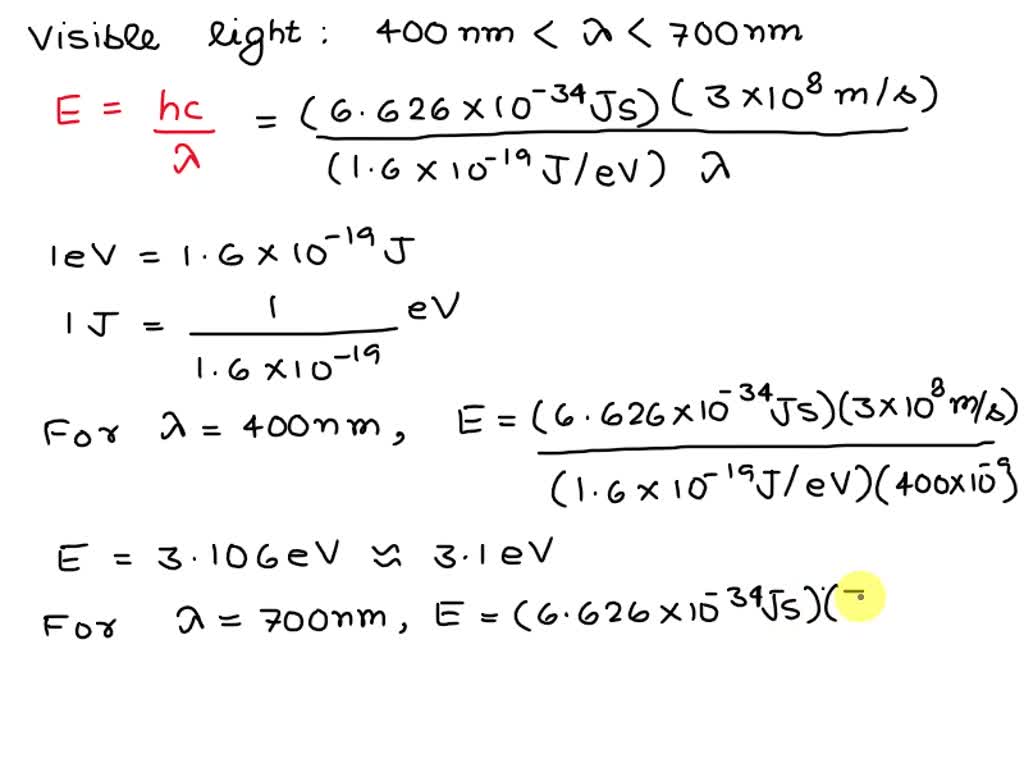 Visible light: 400nm < λ < 700nm
E = hc/λ = (6.626×10⁻³⁴Js)(3×10⁸m/s)/(1.6×10⁻¹⁹J/eV) λ
1eV = 1.6×10⁻¹⁹J
1J = 1/1.6×10⁻¹⁹ eV
For λ = 400nm, E = (6.626×10⁻³⁴Js)(3×10⁸m/s)/(1.6×10⁻¹⁹J/eV)(400×10⁻⁹)
E = 3.106eV ≈ 3.1eV
For λ = 700nm, E = (6.626×10⁻³⁴Js)(